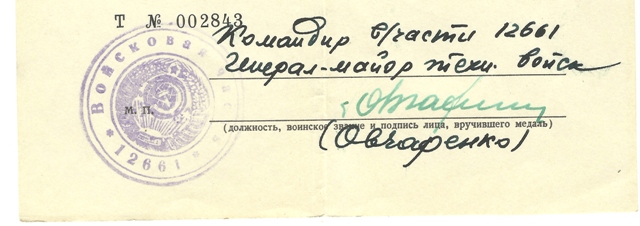 Т № 002843
Командир в/части 12661
Генерал-майор техн. войск
М. П.
(должность, воинское звание и подпись лица, вручившего медаль)
(Овчаренко)
Войсковая часть
* 12661 *